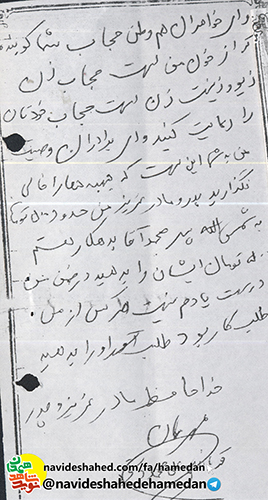 وای خواهران هم وطن حجاب شما کوبنده
تر از خون من است حجاب زن
زیور و زینت زن است حجاب خودتان
را رعایت کنید وای برادران وصیت
من به شما این است که جبهه ها را خالی
نگذارید پدر و مادر عزیز من حدود تومان
به شمس الله پسر محمد آقا بدهکار هستم
تومان ایشان را بدهید در ضمن من
درست یادم نیست هر کس از من
طلب کار بود طلب او را بدهید
خداحافظ مادر عزیز و پدر
مهربان
navideshahed.com/fa/hamedan
@navideshahedehamedan